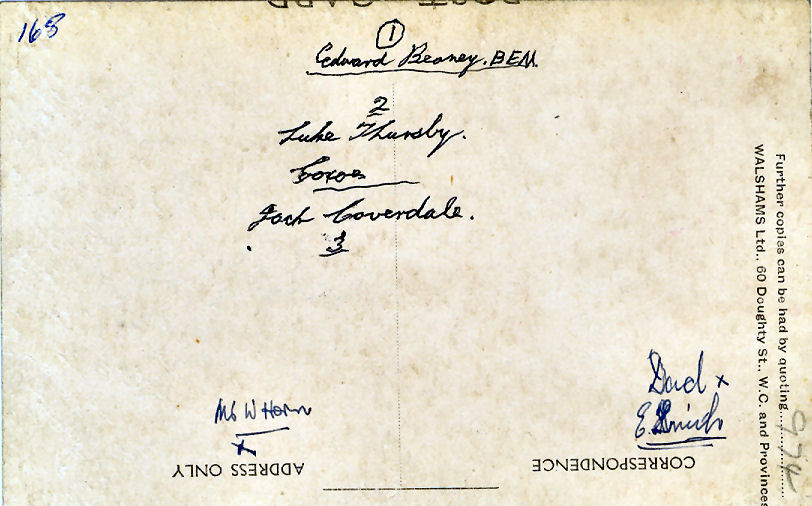 POST CARD
168
1
Edward Beaney. BEM.
2
Luke Thursby.
Coxos
Jack Coverdale.
3
Further copies can be had by quoting..........974
WALSHAMS Ltd., 60 Doughty St., W.C. and Provinces
Dad x
E.
W Horn
x
ADDRESS ONLY
CORRESPONDENCE